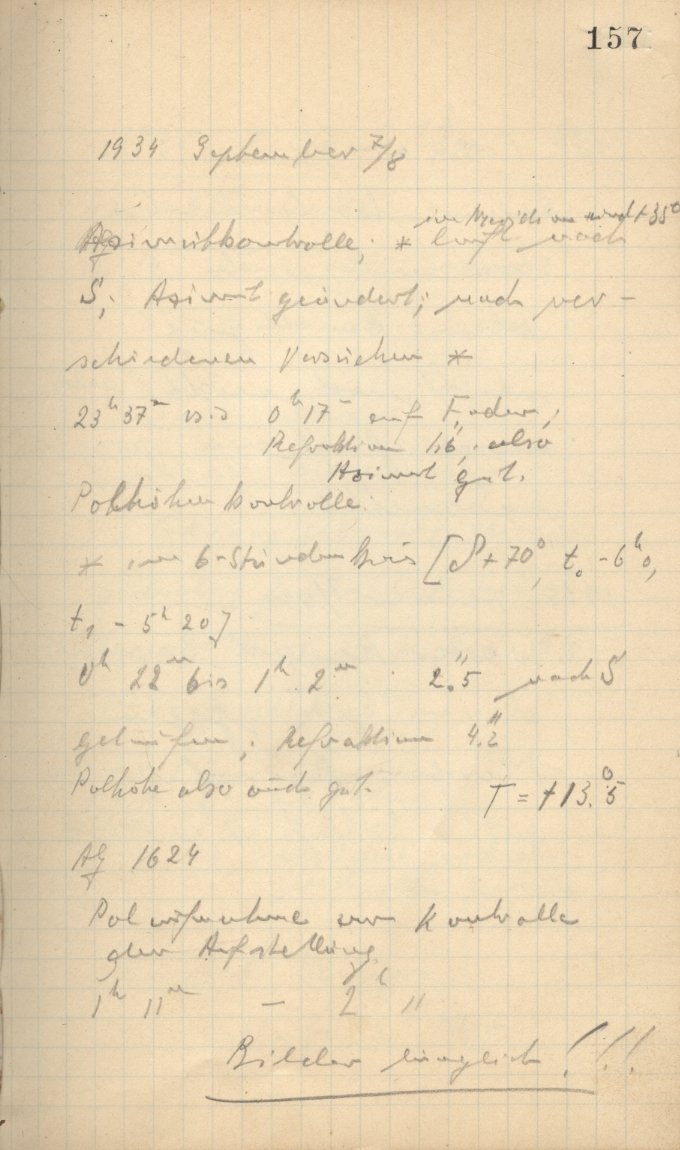 157
1934 September 7/8
im Meridian und +35°
Azimutkontrolle; * läuft nach
S; Azimut geändert; nach ver-
schiedenen Versuchen *
23h 37m bis 0h 17m auf Faden;
Refraktion 1."6, also
Azimut gut.
Polhöhenkontrolle:
* im 6-Stundenkreis [δ +70°, t0 - 6h 0,
t1 - 5h 20]
0h 22m bis 1h 2m 2."5 nach S
gelaufen; Refraktion 4."2
Polhöhe also auch gut. T = +13.°5
1624
Polaufnahme zur Kontrolle
der Aufstellung
1h 11m - 2h 11
Bilder länglich!!!